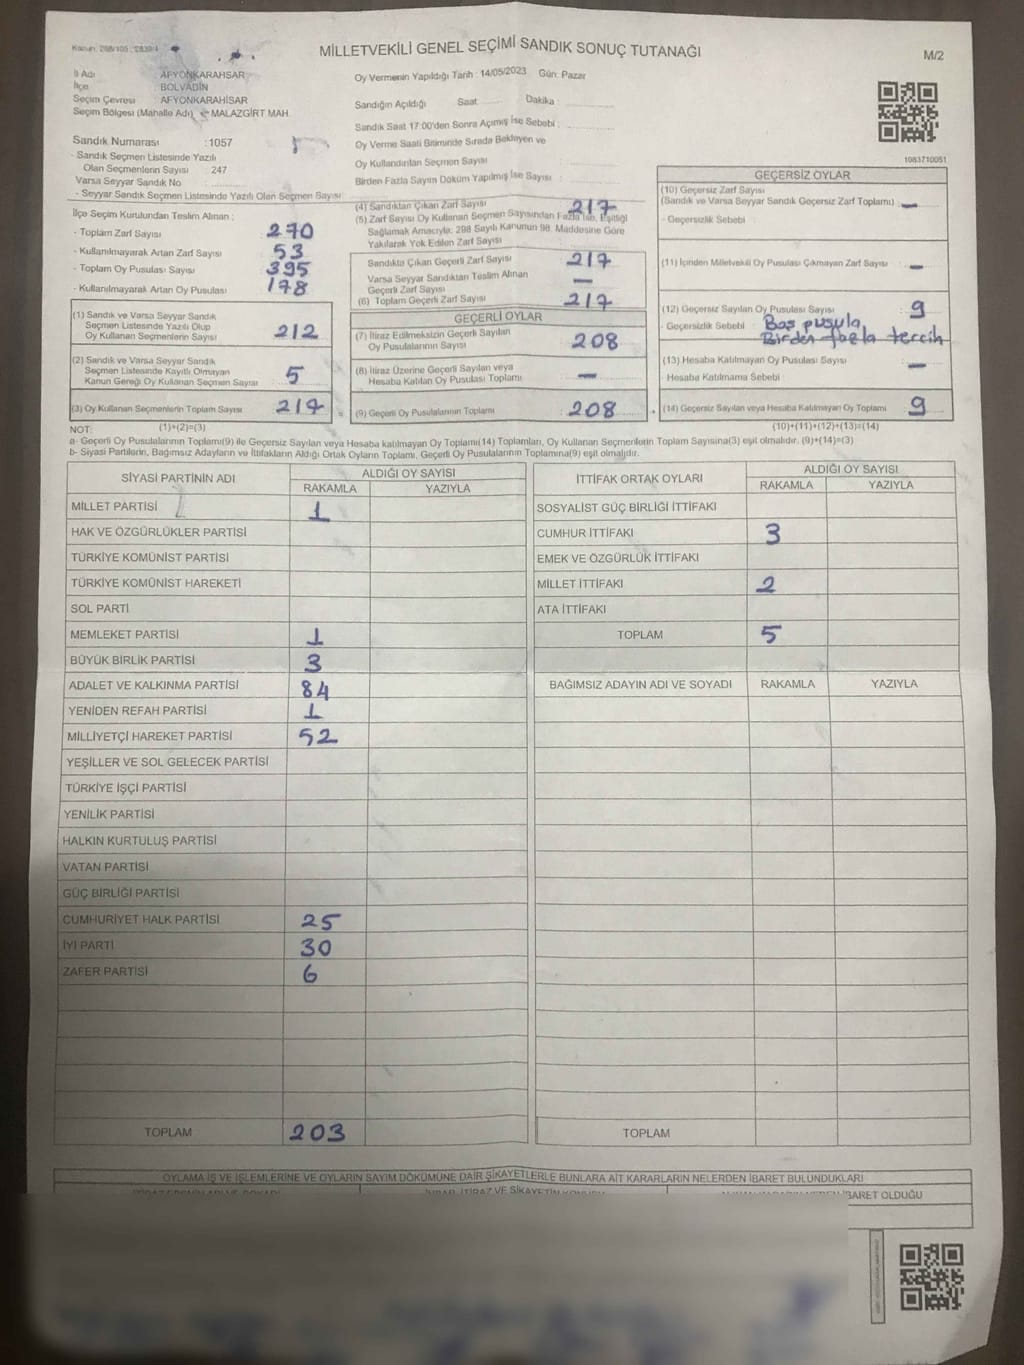 Kanun: 298/105 ; 2839/4
MİLLETVEKİLİ GENEL SEÇİMİ SANDIK SONUÇ TUTANAĞI
M/2
İl Adı : AFYONKARAHİSAR
İlçe : BOLVADİN
Seçim Çevresi : AFYONKARAHİSAR
Seçim Bölgesi (Mahalle Adı) : MALAZGİRT MAH.
Sandık Numarası : 1057
- Sandık Seçmen Listesinde Yazılı
Olan Seçmenlerin Sayısı : 247
Varsa Seyyar Sandık No
- Seyyar Sandık Seçmen Listesinde Yazılı Olan Seçmen Sayısı
Oy Vermenin Yapıldığı Tarih : 14/05/2023 Gün: Pazar
Sandığın Açıldığı Saat Dakika :
Sandık Saat 17:00'den Sonra Açılmış İse Sebebi :
Oy Verme Saati Bitiminde Sırada Bekleyen ve
Oy Kullandırılan Seçmen Sayısı
Birden Fazla Sayım Döküm Yapılmış İse Sayısı :
1083710051
İlçe Seçim Kurulundan Teslim Alınan :
- Toplam Zarf Sayısı : 270
- Kullanılmayarak Artan Zarf Sayısı : 53
- Toplam Oy Pusulası Sayısı : 395
- Kullanılmayarak Artan Oy Pusulası : 178
(1) Sandık ve Varsa Seyyar Sandık
Seçmen Listesinde Yazılı Olup
Oy Kullanan Seçmenlerin Sayısı : 212
(2) Sandık ve Varsa Seyyar Sandık
Seçmen Listesinde Kayıtlı Olmayan
Kanun Gereği Oy Kullanan Seçmen Sayısı : 5
(3) Oy Kullanan Seçmenlerin Toplam Sayısı : 217
(4) Sandıktan Çıkan Zarf Sayısı : 217
(5) Zarf Sayısı Oy Kullanan Seçmen Sayısından Fazla İse, Eşitliği
Sağlamak Amacıyla; 298 Sayılı Kanunun 98. Maddesine Göre
Yakılarak Yok Edilen Zarf Sayısı
Sandıkta Çıkan Geçerli Zarf Sayısı : 217
Varsa Seyyar Sandıktan Teslim Alınan
Geçerli Zarf Sayısı : —
(6) Toplam Geçerli Zarf Sayısı : 217
GEÇERLİ OYLAR
(7) İtiraz Edilmeksizin Geçerli Sayılan
Oy Pusulalarının Sayısı : 208
(8) İtiraz Üzerine Geçerli Sayılan veya
Hesaba Katılan Oy Pusulası Toplamı : —
= (9) Geçerli Oy Pusulalarının Toplamı : 208
GEÇERSİZ OYLAR
(10) Geçersiz Zarf Sayısı
(Sandık ve Varsa Seyyar Sandık Geçersiz Zarf Toplamı) : —
- Geçersizlik Sebebi
(11) İçinden Milletvekili Oy Pusulası Çıkmayan Zarf Sayısı : —
(12) Geçersiz Sayılan Oy Pusulası Sayısı : 9
- Geçersizlik Sebebi : Boş pusula
Birden fazla tercih
(13) Hesaba Katılmayan Oy Pusulası Sayısı : —
- Hesaba Katılmama Sebebi
+ (14) Geçersiz Sayılan veya Hesaba Katılmayan Oy Toplamı : 9
NOT: (1)+(2)=(3)
(10)+(11)+(12)+(13)=(14)
a- Geçerli Oy Pusulalarının Toplamı(9) ile Geçersiz Sayılan veya Hesaba katılmayan Oy Toplamı(14) Toplamları, Oy Kullanan Seçmenlerin Toplam Sayısına(3) eşit olmalıdır. (9)+(14)=(3)
b- Siyasi Partilerin, Bağımsız Adayların ve İttifakların Aldığı Ortak Oyların Toplamı, Geçerli Oy Pusulalarının Toplamına(9) eşit olmalıdır.
SİYASİ PARTİNİN ADI ALDIĞI OY SAYISI
RAKAMLA YAZIYLA
MİLLET PARTİSİ 1
HAK VE ÖZGÜRLÜKLER PARTİSİ
TÜRKİYE KOMÜNİST PARTİSİ
TÜRKİYE KOMÜNİST HAREKETİ
SOL PARTİ
MEMLEKET PARTİSİ 1
BÜYÜK BİRLİK PARTİSİ 3
ADALET VE KALKINMA PARTİSİ 84
YENİDEN REFAH PARTİSİ 1
MİLLİYETÇİ HAREKET PARTİSİ 52
YEŞİLLER VE SOL GELECEK PARTİSİ
TÜRKİYE İŞÇİ PARTİSİ
YENİLİK PARTİSİ
HALKIN KURTULUŞ PARTİSİ
VATAN PARTİSİ
GÜÇ BİRLİĞİ PARTİSİ
CUMHURİYET HALK PARTİSİ 25
İYİ PARTİ 30
ZAFER PARTİSİ 6
TOPLAM 203
İTTİFAK ORTAK OYLARI ALDIĞI OY SAYISI
RAKAMLA YAZIYLA
SOSYALİST GÜÇ BİRLİĞİ İTTİFAKI
CUMHUR İTTİFAKI 3
EMEK VE ÖZGÜRLÜK İTTİFAKI
MİLLET İTTİFAKI 2
ATA İTTİFAKI
TOPLAM 5
BAĞIMSIZ ADAYIN ADI VE SOYADI RAKAMLA YAZIYLA
TOPLAM
OYLAMA İŞ VE İŞLEMLERİNE VE OYLARIN SAYIM DÖKÜMÜNE DAİR ŞİKAYETLERLE BUNLARA AİT KARARLARIN NELERDEN İBARET BULUNDUKLARI
İHBAR, İTİRAZ VE ŞİKAYETİN KONUSU
İBARET OLDUĞU